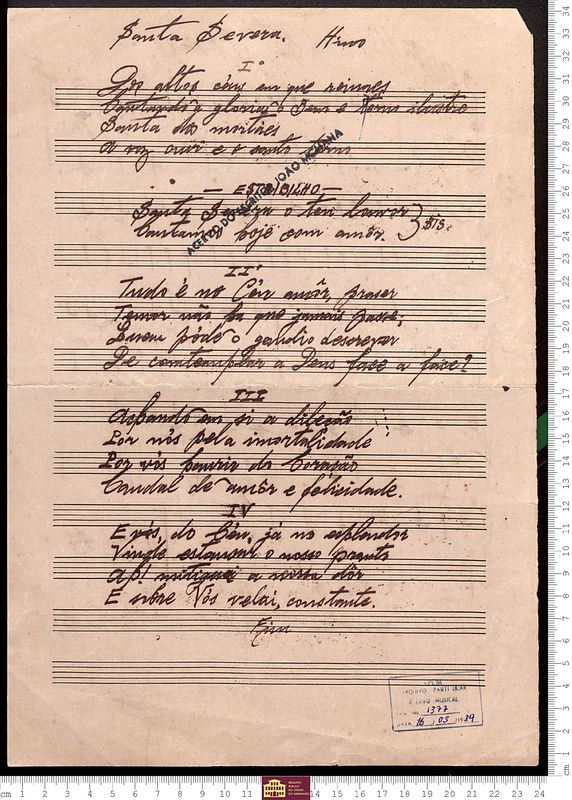 Santa Severa. Hino
I°
Dos altos céus em que reinaes
Cantando a gloria o Deus e
Santa dos mortaes
A voz ouvi e o canto terno
— ESTRIBILHO —
Santa Severa o teu louvor
Cantamos hoje com amôr. } BIS.
II°
Tudo é no Céu amôr, praser
Temor não ha que jamais passe;
Quem póde o gaudio descrever
De contemplar a Deus face a face?
III
Achando em si a dileção
Por nós pela imortalidade
Por vós do Coração
Caudal de amôr e felicidade.
IV
E vós, do Céu, já no esplendor
Vinde estancar o nosso pranto
Ah! mitigai a nossa dôr
E sobre Nós velai, constante.
Fim
ACERVO DO JOÃO MOHANA
ARQUIVO PARTICULAR
ACERVO MUSICAL
1377
DATA 16 / 03 / 1989